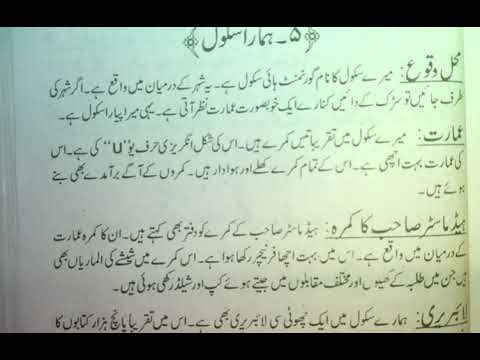 ۵۔ ہمارا سکول
محل وقوع: میرے سکول کا نام گورنمنٹ ہائی سکول ہے۔ یہ شہر کے درمیان میں واقع ہے۔ اگر شہر کی
طرف جائیں تو سڑک کے دائیں کنارے ایک خوبصورت عمارت نظر آتی ہے۔ یہی میرا پیارا سکول ہے۔
عمارت: میرے سکول میں تقریباً تیس کمرے ہیں۔ اس کی شکل انگریزی حرف یُو "U" کی ہے۔ اس
کی عمارت بہت اچھی ہے۔ اس کے تمام کمرے کھلے اور ہوادار ہیں۔ کمروں کے آگے برآمدے بھی بنے
ہوئے ہیں۔
ہیڈ ماسٹر صاحب کا کمرہ: ہیڈ ماسٹر صاحب کے کمرے کو دفتر بھی کہتے ہیں۔ ان کا کمرہ عمارت
کے درمیان میں واقع ہے۔ اس میں بہت اچھا فرنیچر رکھا ہوا ہے۔ اس کمرے میں شیشے کی الماریاں بھی
ہیں جن میں طلبہ کے کھیلوں اور مختلف مقابلوں میں جیتے ہوئے کپ اور شیلڈز رکھی ہوئی ہیں۔
لائبریری: ہمارے سکول میں ایک چھوٹی سی لائبریری بھی ہے۔ اس میں تقریباً پانچ ہزار کتابوں کا